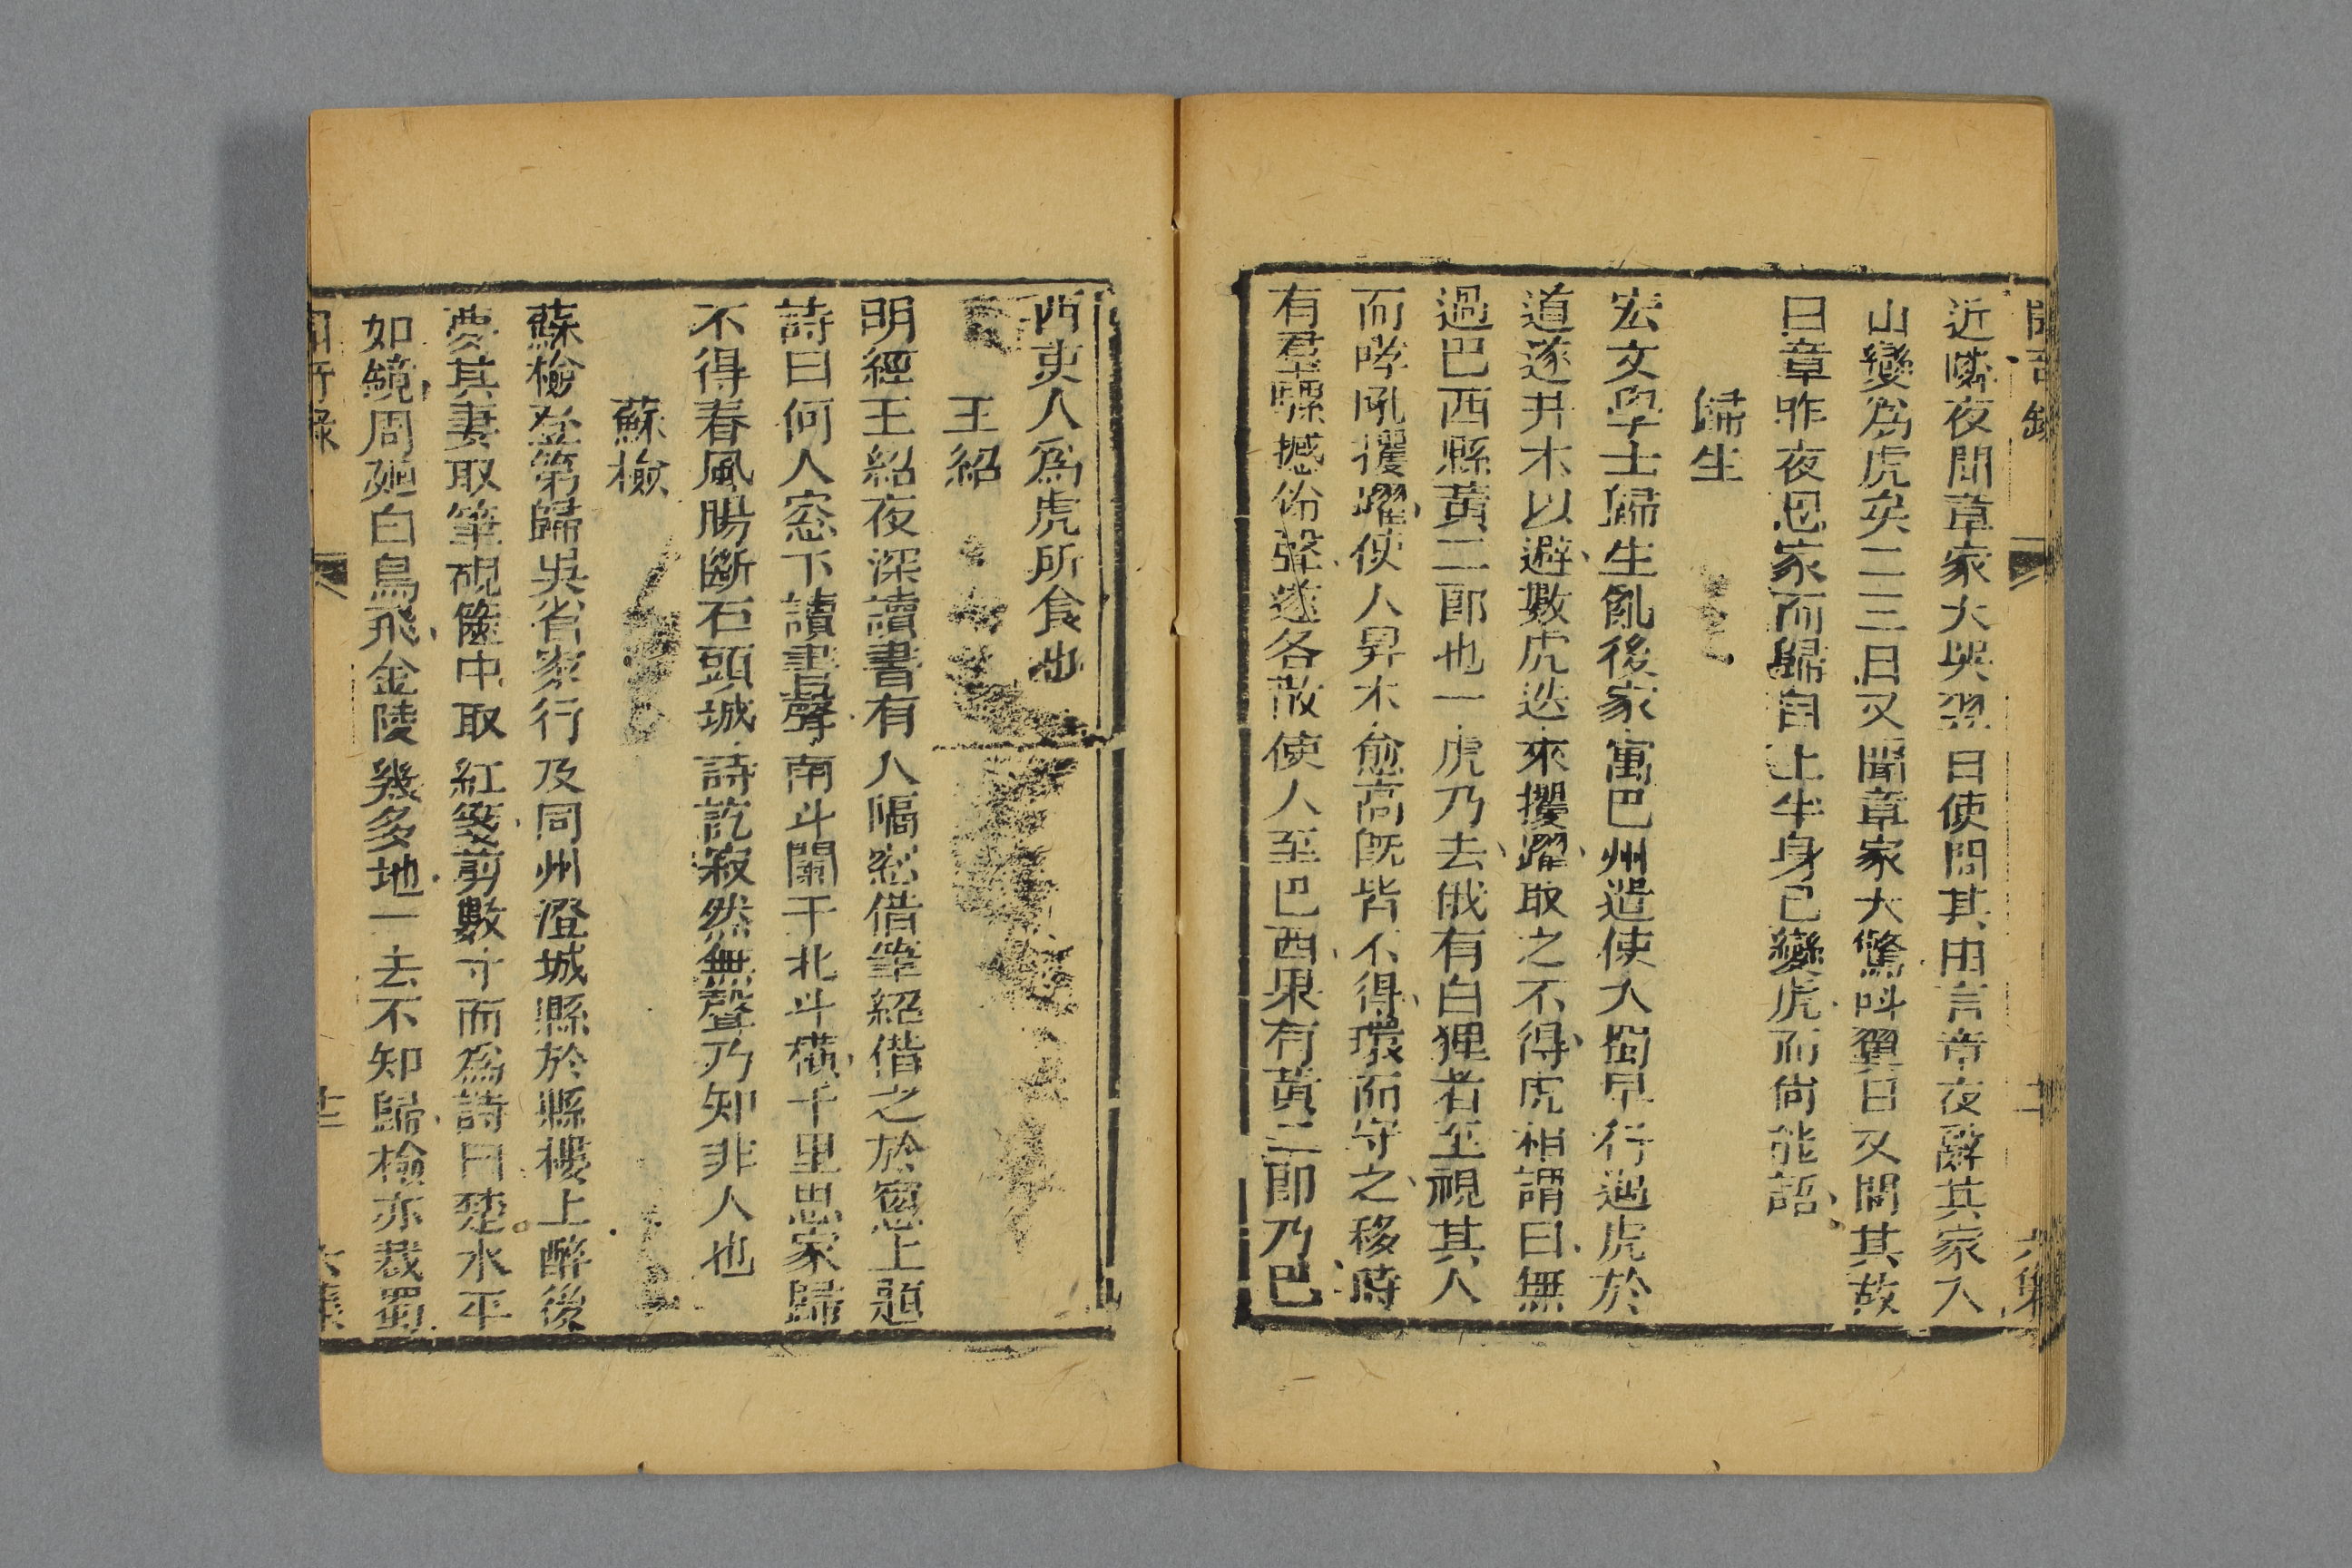 近隣夜聞章家大哭翌日使問其由言章夜辭其家入
山變爲虎矣二三日又聞章家大驚呌翼日又問其故
曰章昨夜思家而歸自上半身已變虎而尚能語
歸生
宏文學士歸生亂後家寓巴州遣使入蜀早行遇虎於
道遂升木以避數虎迭來攫躍取之不得虎相謂曰無
過巴西縣黃二郎也一虎乃去俄有白狸者至視其人
而哮吼攫躍使人昇木愈高既皆不得環而守之移時
有羣騾撼鈴聲遂各散使人至巴西果有黃二郎乃巴
西吏人爲虎所食也
王紹
明經王紹夜深讀書有人隔窓借筆紹借之於窻上題
詩曰何人窓下讀書聲南斗闌干北斗橫千里思家歸
不得春風腸斷石頭城詩訖寂然無聲乃知非人也
蘇檢
蘇檢登第歸吳省家行及同州澄城縣於縣樓上醉後
夢其妻取筆硯篋中取紅箋剪數寸而爲詩曰楚水平
如鏡周廻白鳥飛金陵幾多地一去不知歸檢亦裁蜀
聞奇錄